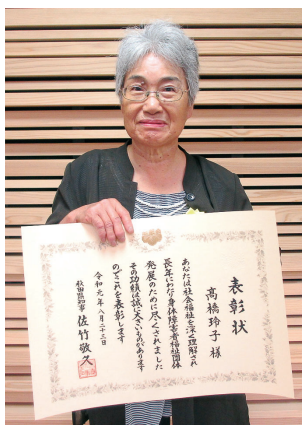 表彰状
高橋玲子様
あなたは社会福祉を深く理解され
長年にわたり身体障害者福祉団体
発展のために尽くされました
その功績は誠に大きいものがあります
のでこれを表彰します
令和元年八月二十三日
秋田県知事 佐竹敬久